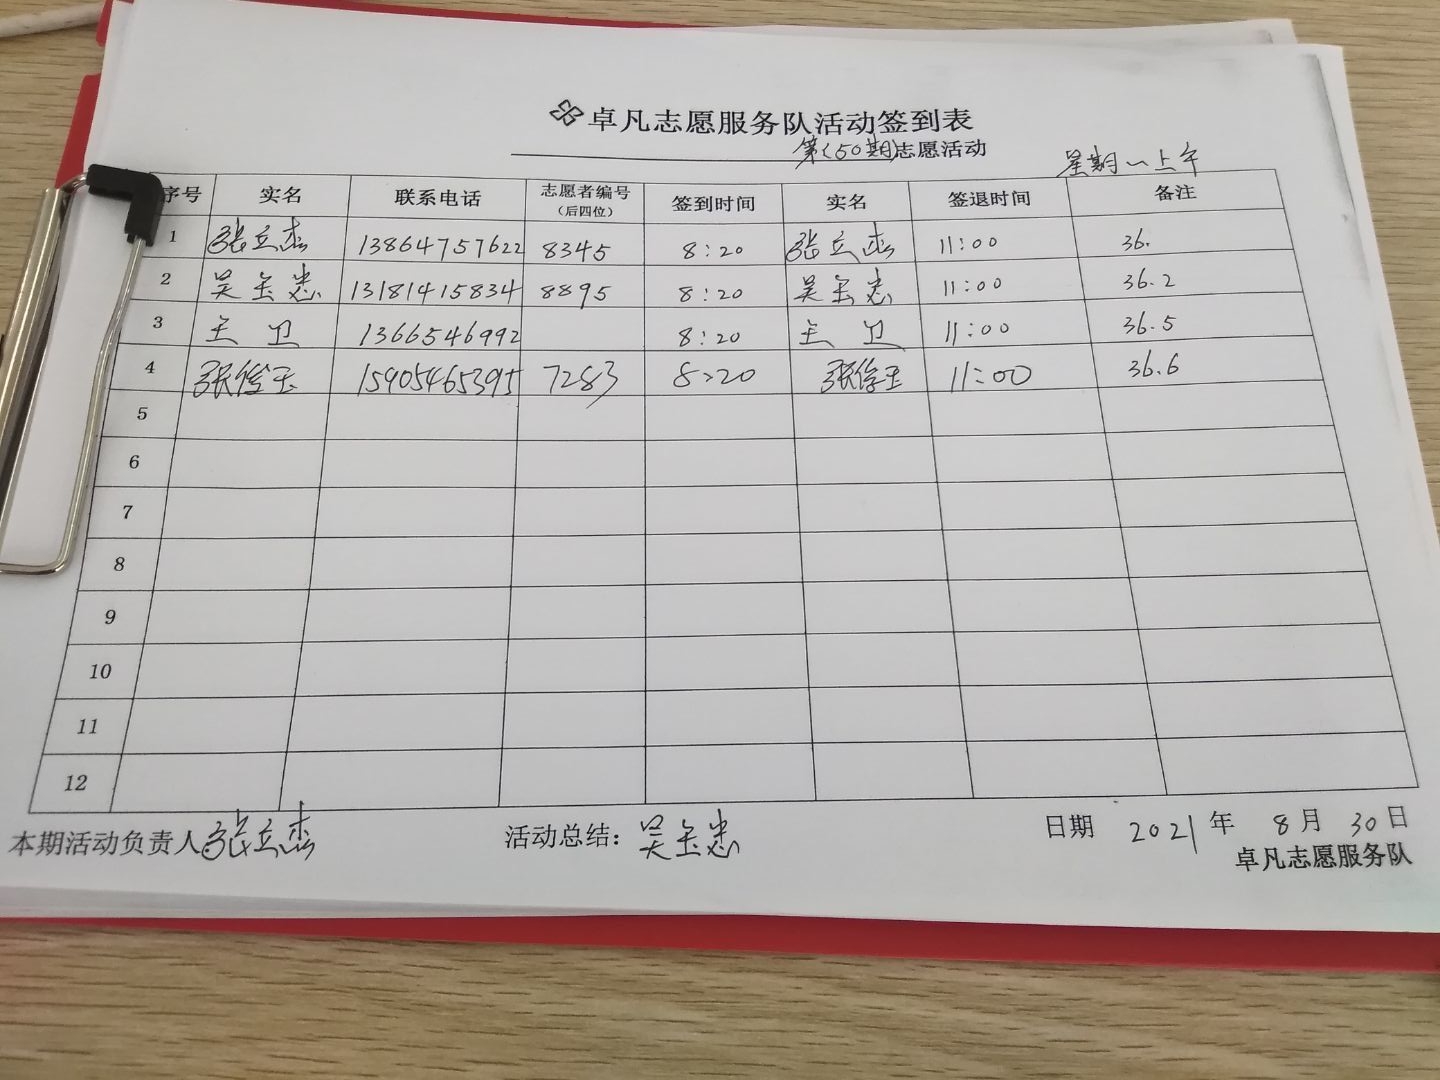 卓凡志愿服务队活动签到表
第(50期)志愿活动
星期一上午
序号 实名 联系电话 志愿者编号（后四位） 签到时间 实名 签退时间 备注
1 张立杰 13864757622 8345 8:20 张立杰 11:00 36.
2 吴玉忠 13181415834 8895 8:20 吴玉忠 11:00 36.2
3 王卫 1366546992 8:20 王卫 11:00 36.5
4 张俊玉 15905465395 7283 8:20 张俊玉 11:00 36.6
5
6
7
8
9
10
11
12
本期活动负责人:张立杰 活动总结：吴玉忠 日期 2021年 8月 30日
卓凡志愿服务队